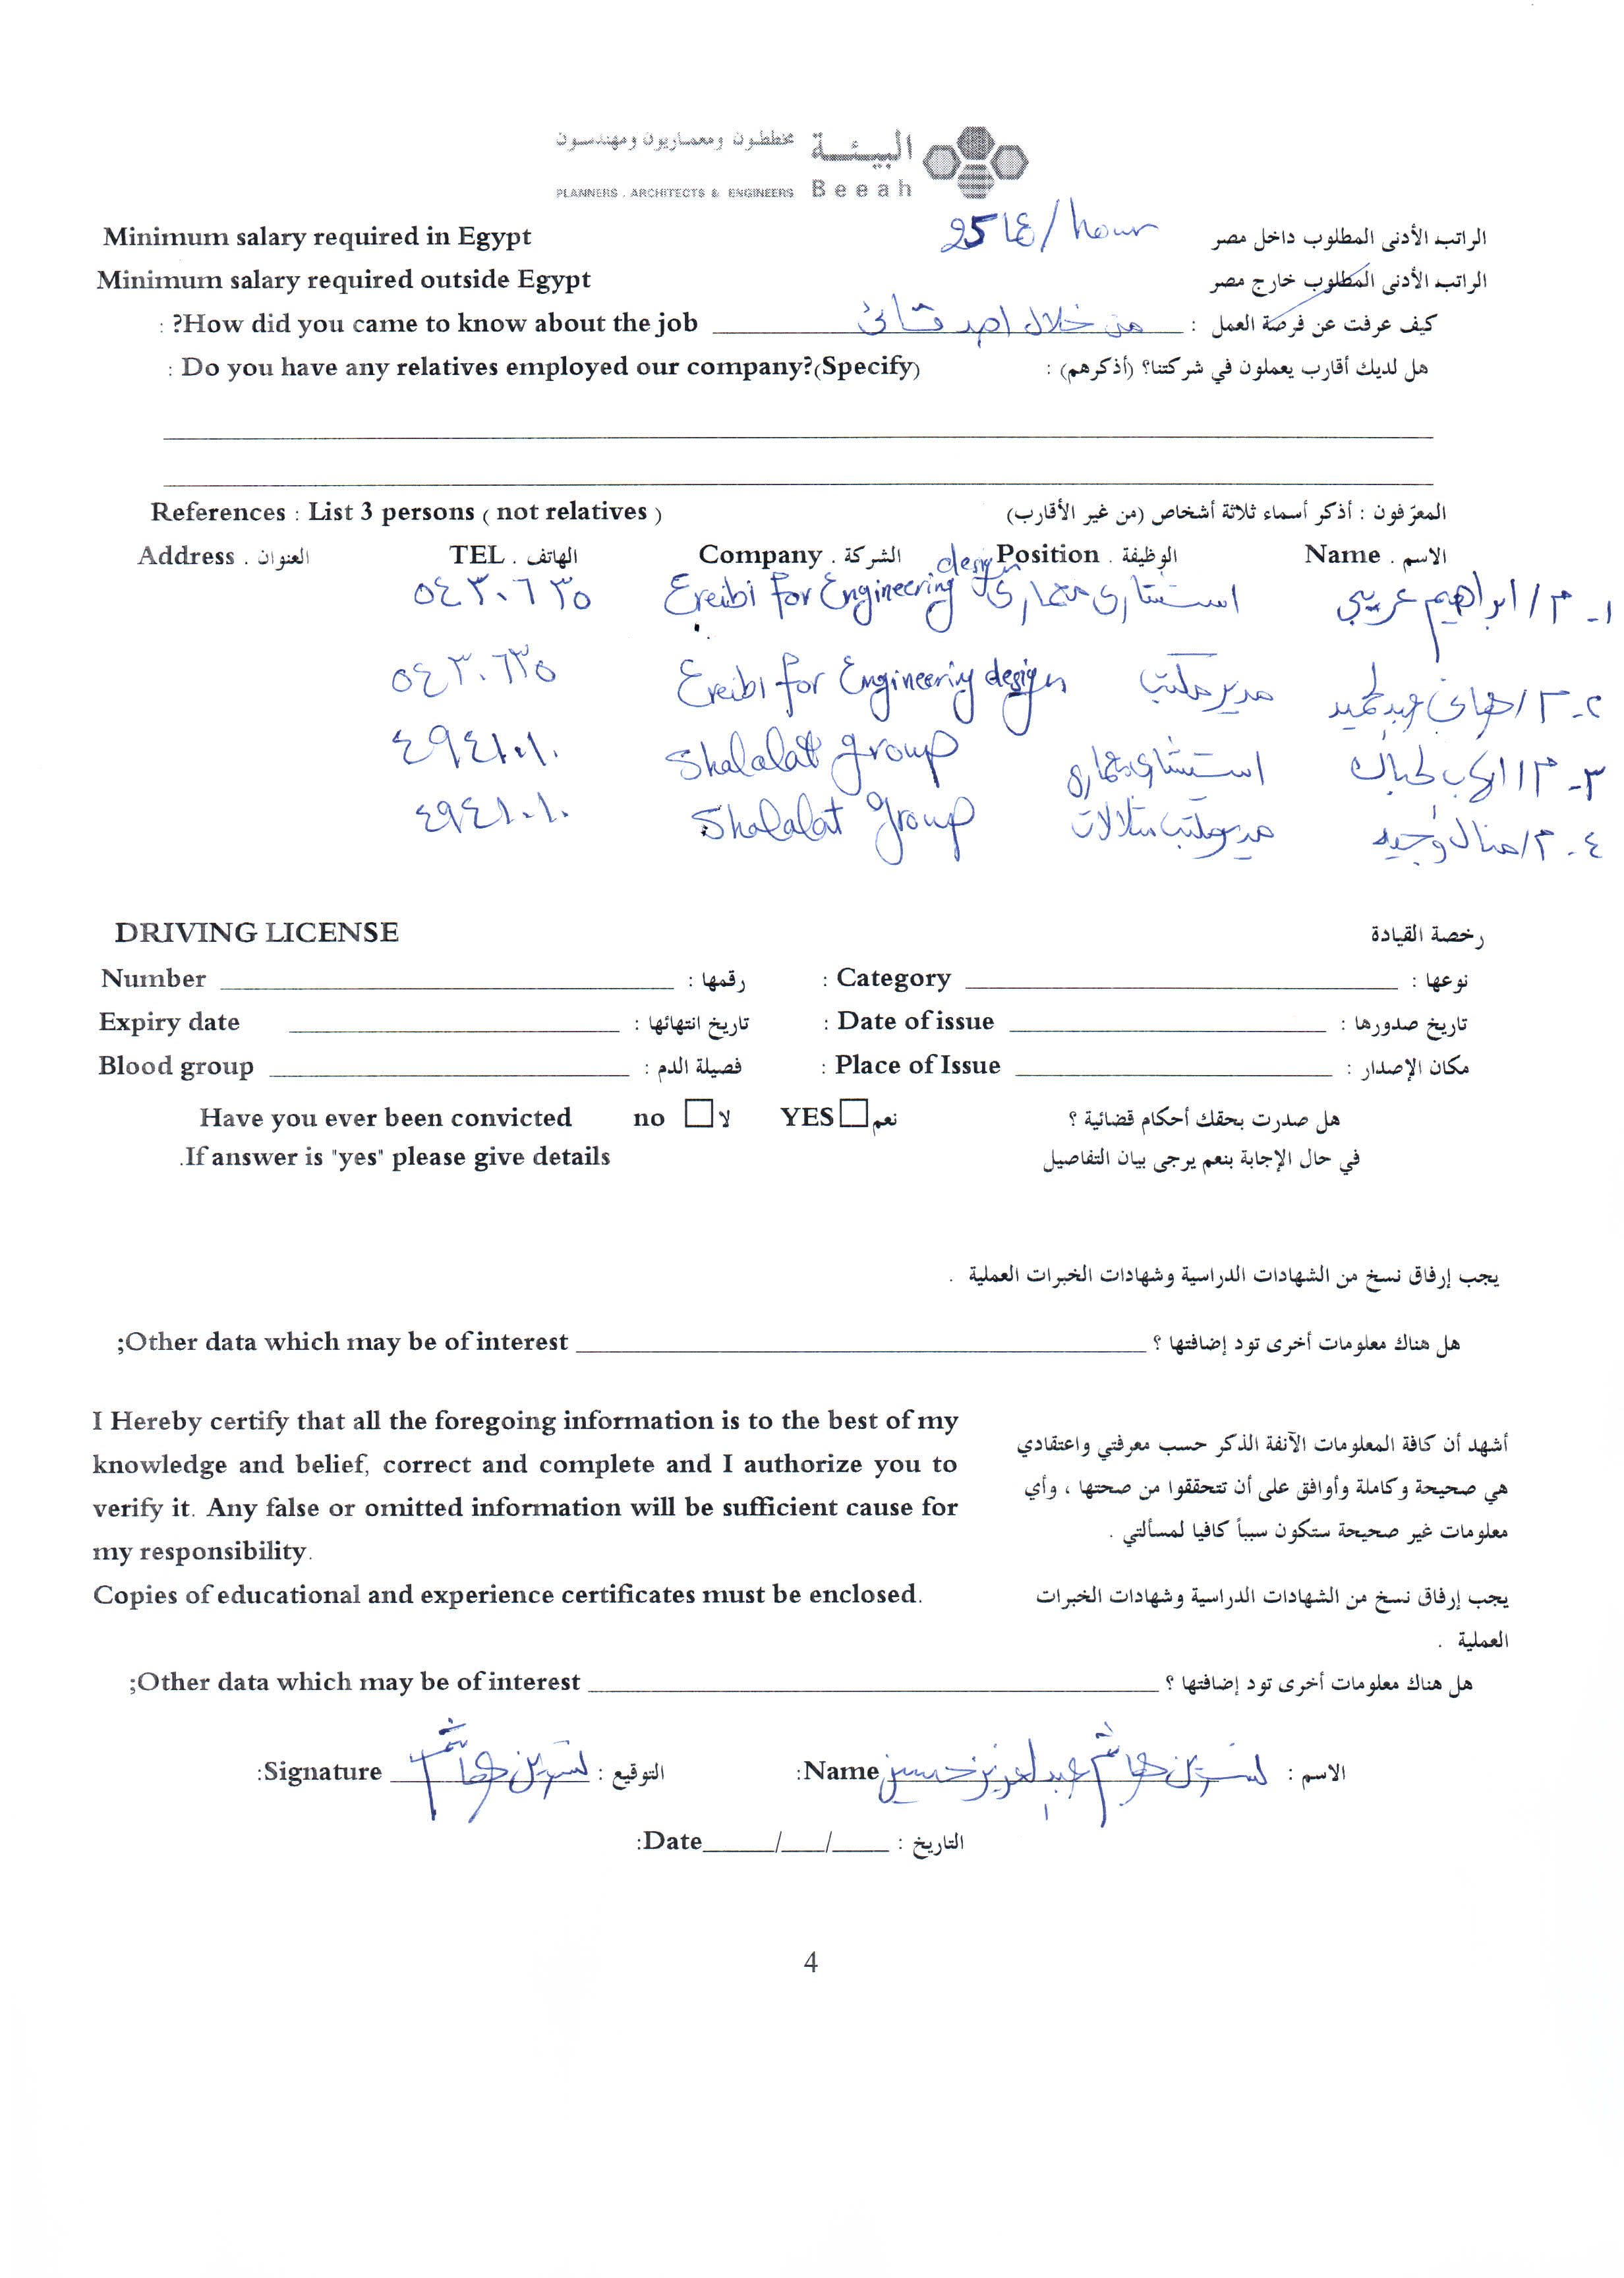 مخططون ومعماريون ومهندسون البيئة
PLANNERS . ARCHITECTS & ENGINEERS Beeah
Minimum salary required in Egypt 25 /hour الراتب الأدنى المطلوب داخل مصر
Minimum salary required outside Egypt الراتب الأدنى المطلوب خارج مصر
: ?How did you came to know about the job من خلال اصدقائى : كيف عرفت عن فرصة العمل
: Do you have any relatives employed our company?(Specify) هل لديك أقارب يعملون في شركتنا؟ (أذكرهم) :
References : List 3 persons ( not relatives ) المعرّفون : أذكر أسماء ثلاثة أشخاص (من غير الأقارب)
Address . العنوان TEL . الهاتف Company . الشركة Position . الوظيفة Name . الاسم
١- م/ ابراهيم عريبي استشارى معمارى Ereibi for Engineering design ٥٤٣٠٦٣٥
٢- م/ هانى عبد الحميد مدير مكتب Ereibi for Engineering design ٥٤٣٠٦٣٥
٣- م/ استشارى معمارى Shalalat group ٤٩٤١٠١٠
٤- م/ منال وجيه مدير مكتب شلالات Shalalat group ٤٩٤١٠١٠
DRIVING LICENSE رخصة القيادة
Number رقمها : : Category نوعها :
Expiry date تاريخ انتهائها : : Date of issue تاريخ صدورها :
Blood group فصيلة الدم : : Place of Issue مكان الإصدار :
Have you ever been convicted no لا YES نعم هل صدرت بحقك أحكام قضائية ؟
.If answer is "yes" please give details في حال الإجابة بنعم يرجى بيان التفاصيل
يجب إرفاق نسخ من الشهادات الدراسية وشهادات الخبرات العملية .
;Other data which may be of interest هل هناك معلومات أخرى تود إضافتها ؟
I Hereby certify that all the foregoing information is to the best of my
knowledge and belief, correct and complete and I authorize you to
verify it. Any false or omitted information will be sufficient cause for
my responsibility.
أشهد أن كافة المعلومات الآنفة الذكر حسب معرفتي واعتقادي
هي صحيحة وكاملة وأوافق على أن تتحققوا من صحتها ، وأي
معلومات غير صحيحة ستكون سبباً كافيا لمسألتي .
Copies of educational and experience certificates must be enclosed.
يجب إرفاق نسخ من الشهادات الدراسية وشهادات الخبرات
العملية .
;Other data which may be of interest هل هناك معلومات أخرى تود إضافتها ؟
:Signature نسرين هاشم التوقيع : :Name نسرين هاشم عبد العزيز حسين الاسم :
:Date / / التاريخ :
4